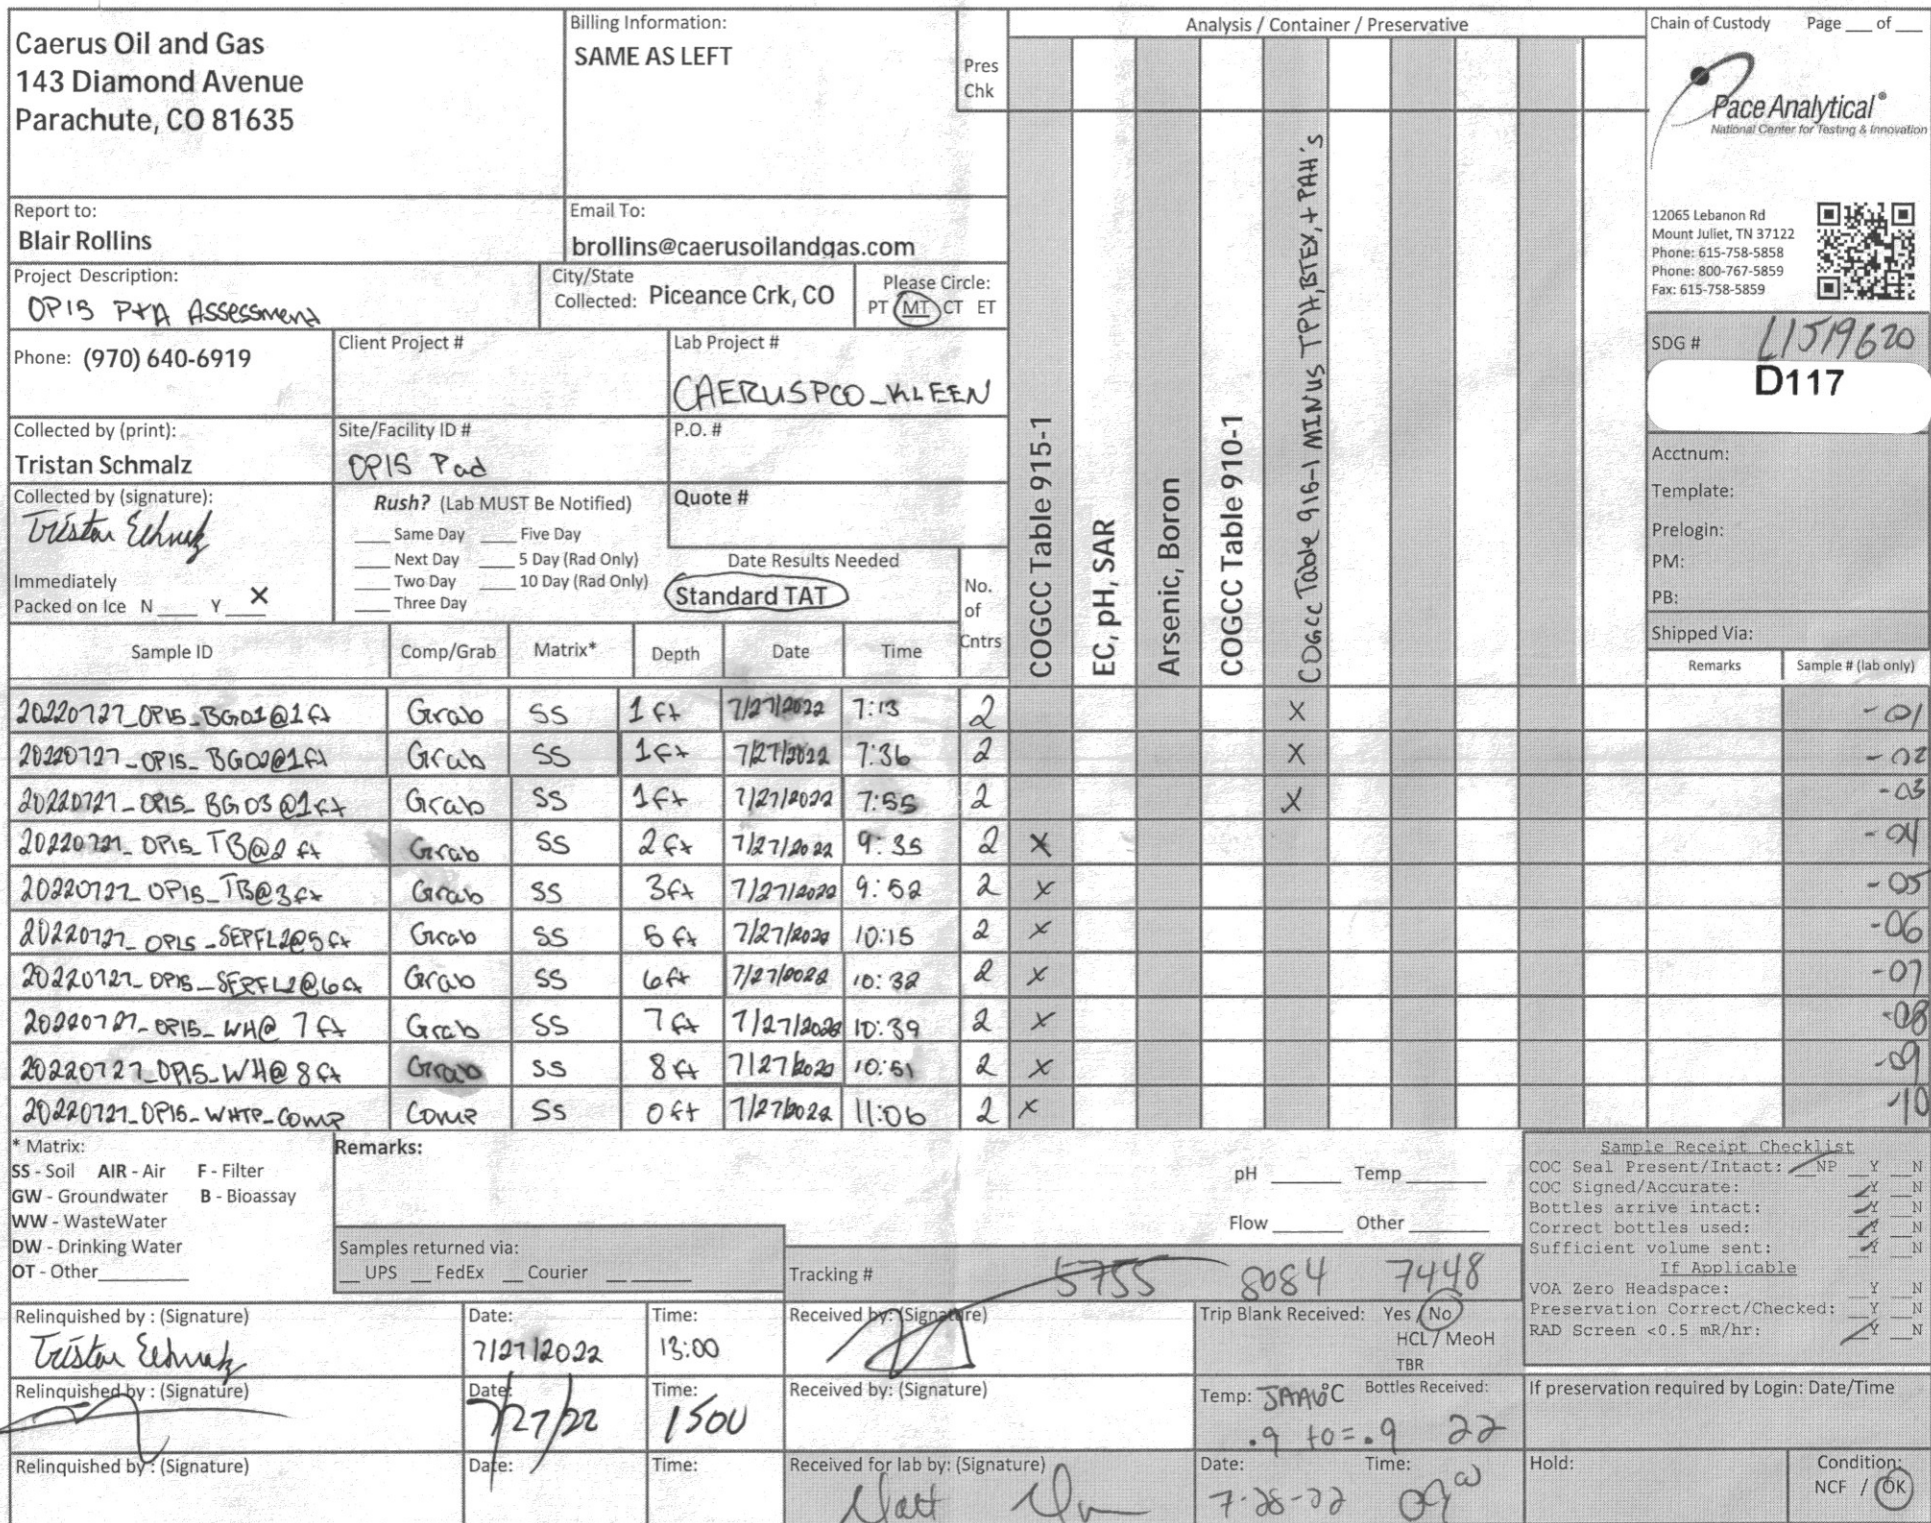 Caerus Oil and Gas
143 Diamond Avenue
Parachute, CO 81635
Billing Information:
SAME AS LEFT
Pres
Chk
Analysis / Container / Preservative
Chain of Custody Page ___ of ___
Pace Analytical®
National Center for Testing & Innovation
12065 Lebanon Rd
Mount Juliet, TN 37122
Phone: 615-758-5858
Phone: 800-767-5859
Fax: 615-758-5859
Report to:
Blair Rollins
Email To:
brollins@caerusoilandgas.com
Project Description:
OP15 P+A Assessment
City/State
Collected: Piceance Crk, CO
Please Circle:
PT MT CT ET
Phone: (970) 640-6919
Client Project #
Lab Project #
CAERUSPCO_KLEEN
Collected by (print):
Tristan Schmalz
Site/Facility ID #
OP15 Pad
P.O. #
Collected by (signature):
Rush? (Lab MUST Be Notified)
___ Same Day ___ Five Day
___ Next Day ___ 5 Day (Rad Only)
___ Two Day ___ 10 Day (Rad Only)
___ Three Day
Quote #
Date Results Needed
Standard TAT
Immediately
Packed on Ice N ___ Y X
No.
of
Cntrs
COGCC Table 915-1
EC, pH, SAR
Arsenic, Boron
COGCC Table 910-1
COGCC Table 915-1 MINUS TPH, BTEX, + PAH's
SDG # L1519620
D117
Acctnum:
Template:
Prelogin:
PM:
PB:
Shipped Via:
Sample ID Comp/Grab Matrix* Depth Date Time Remarks Sample # (lab only)
20220727_OP15_BG01@1ft Grab SS 1 ft 7/27/2022 7:13 2 X -01
20220727_OP15_BG02@1ft Grab SS 1ft 7/27/2022 7:36 2 X -02
20220727_OP15_BG03@1ft Grab SS 1ft 7/27/2022 7:55 2 X -03
20220727_OP15_TB@2 ft Grab SS 2 ft 7/27/2022 9:35 2 X -04
20220727_OP15_TB@3ft Grab SS 3ft 7/27/2022 9:52 2 X -05
20220727_OP15_SEPFL2@5ft Grab SS 5 ft 7/27/2022 10:15 2 X -06
20220727_OP15_SEPFL2@6ft Grab SS 6ft 7/27/2022 10:32 2 X -07
20220727_OP15_WH@ 7 ft Grab SS 7 ft 7/27/2022 10:39 2 X -08
20220727_OP15_WH@ 8 ft Grab SS 8 ft 7/27/2022 10:51 2 X -09
20220727_OP15_WHTP_COMP Comp SS 0 ft 7/27/2022 11:06 2 X -10
* Matrix:
SS - Soil AIR - Air F - Filter
GW - Groundwater B - Bioassay
WW - WasteWater
DW - Drinking Water
OT - Other___
Remarks:
pH ___ Temp ___
Flow ___ Other ___
Samples returned via:
__ UPS __ FedEx __ Courier __ ___
Tracking # 5755 8084 7448
Sample Receipt Checklist
COC Seal Present/Intact: NP Y N
COC Signed/Accurate: Y N
Bottles arrive intact: Y N
Correct bottles used: Y N
Sufficient volume sent: Y N
If Applicable
VOA Zero Headspace: Y N
Preservation Correct/Checked: Y N
RAD Screen <0.5 mR/hr: Y N
Relinquished by : (Signature) Date: 7/27/2022 Time: 13:00 Received by: (Signature)
Trip Blank Received: Yes / No
HCL / MeoH
TBR
Relinquished by : (Signature) Date: 7/27/22 Time: 1500 Received by: (Signature)
Temp: °C Bottles Received:
.9 +0=.9 22
If preservation required by Login: Date/Time
Relinquished by : (Signature) Date: Time: Received for lab by: (Signature)
Matt
Date: 7-28-22 Time: 0900
Hold:
Condition:
NCF / OK